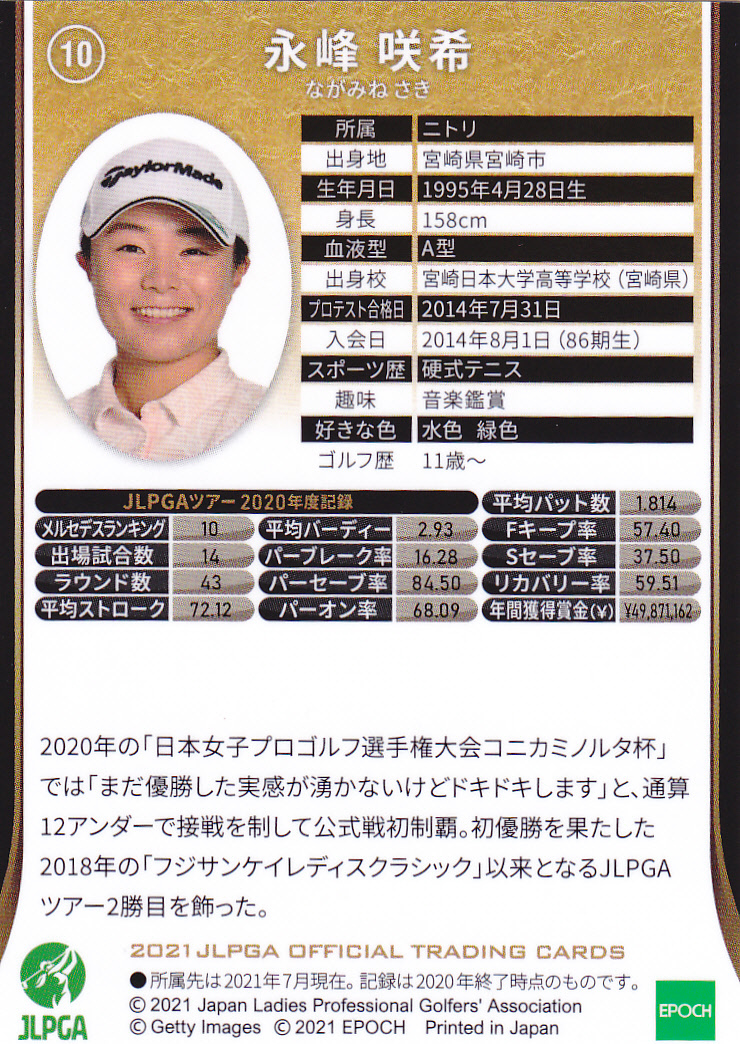 10
永峰 咲希
ながみね さき
TaylorMade
所属 ニトリ
出身地 宮崎県宮崎市
生年月日 1995年4月28日生
身長 158cm
血液型 A型
出身校 宮崎日本大学高等学校（宮崎県）
プロテスト合格日 2014年7月31日
入会日 2014年8月1日（86期生）
スポーツ歴 硬式テニス
趣味 音楽鑑賞
好きな色 水色 緑色
ゴルフ歴 11歳～
JLPGAツアー 2020年度記録 平均パット数 1.814
メルセデスランキング 10 平均バーディー 2.93 Fキープ率 57.40
出場試合数 14 パーブレーク率 16.28 Sセーブ率 37.50
ラウンド数 43 パーセーブ率 84.50 リカバリー率 59.51
平均ストローク 72.12 パーオン率 68.09 年間獲得賞金(¥) ¥49,871,162
2020年の「日本女子プロゴルフ選手権大会コニカミノルタ杯」
では「まだ優勝した実感が湧かないけどドキドキします」と、通算
12アンダーで接戦を制して公式戦初制覇。初優勝を果たした
2018年の「フジサンケイレディスクラシック」以来となるJLPGA
ツアー2勝目を飾った。
2021 JLPGA OFFICIAL TRADING CARDS
●所属先は2021年7月現在。記録は2020年終了時点のものです。
© 2021 Japan Ladies Professional Golfers' Association
© Getty Images © 2021 EPOCH Printed in Japan
JLPGA
EPOCH